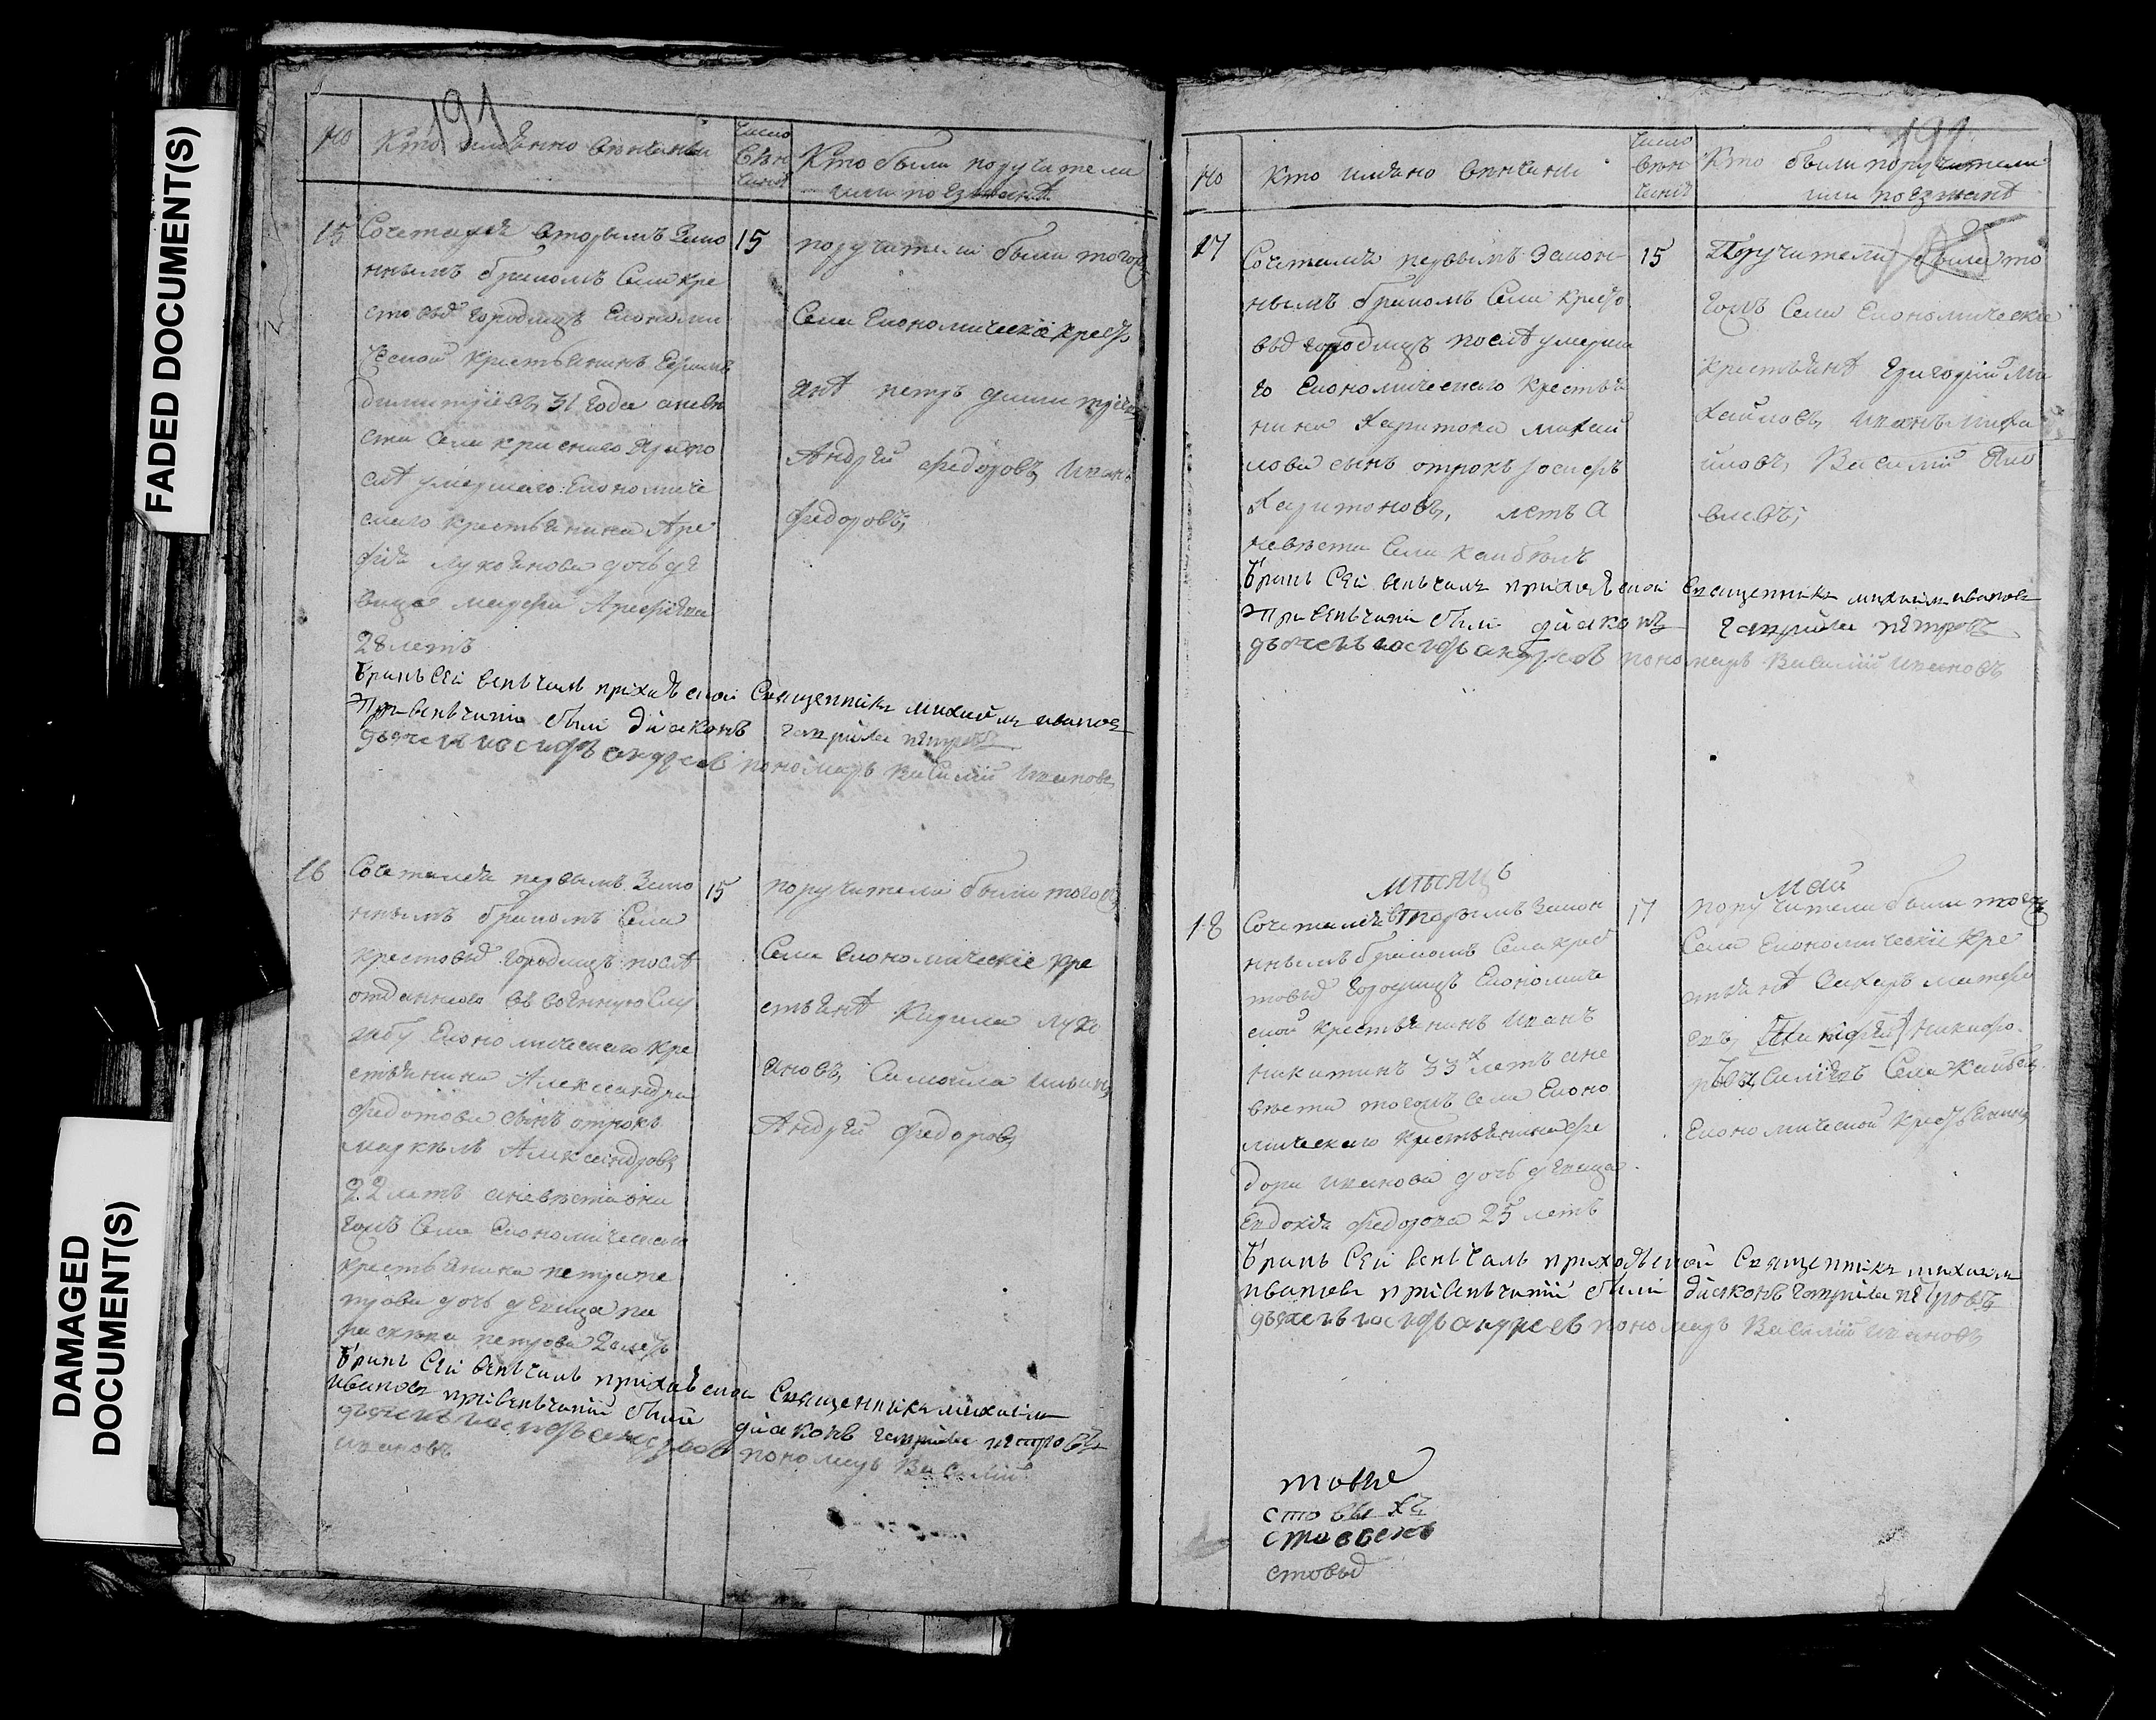 FADED DOCUMENT(S)
DAMAGED
DOCUMENT(S)
191
№
Кто имянно венчаны
Число
Вен
чания
Кто были поручители
или поезжанѣ
15
Сочетался вторымъ Зако
ннымъ бракомъ Села Кре
стовыхъ городищъ Економи
ческой крестьянинъ
Димитріевъ 31 года а неве
ста села краснаго Яру по
слѣ умершаго Економиче
скаго крестьянина Аре
фія лукоянова дочь дѣ
вица марфа Арефіева
28 летъ
15
поручители были тогожъ
Села Економическіе крест
янѣ петръ димитріевъ
Андрей федоровъ Иванъ
федоровъ,
Бракъ Сей венчалъ приходской Священникъ михаилъ ивановъ
При венчаніи были діаконъ гаврила петровъ
дьячекъ иосифъ андреевъ пономарь Василій Ивановъ
16
Сочетался первымъ Зако
ннымъ бракомъ Села
Крестовыхъ городищъ послѣ
отданнаго въ военную слу
жбу Економическаго кре
стьянина Александра
федотова сынъ отрокъ
маркелъ Александровъ
22 летъ а невеста она
гожъ Села Економическаго
крестьянина петра пе
трова дочь дѣвица па
раскева петрова 20 летъ
15
поручители были тогожъ
Села Економическіе кре
стьянѣ Кирила лукі
яновъ, Самойла Ильинъ
Андрей федоровъ
Бракъ Сей венчалъ приходской Священникъ михаилъ
ивановъ при венчаніи были діаконъ гаврила петровъ
дьячекъ иосифъ андреевъ пономарь Василій
Ивановъ
191
№
Кто имяно венчаны
Число
вен
чания
Кто были поручители
или поезжанѣ
17
Сочетался первымъ Закон
нымъ бракомъ Села Кресто
выхъ городищъ послѣ умерша
го Економическаго крестья
нина Харитона михаи
лова сынъ отрокъ Іосифъ
Харитоновъ, летъ а
невеста Села Кайбелъ
15
Поручители были то
гожъ Села Економическіе
крестьянѣ григорій ми
хайловъ, Иванъ миха
йловъ, Василій Яко
влевъ,
Бракъ Сей венчалъ приходской Священникъ михаилъ ивановъ
При венчаніи были діаконъ гаврила петровъ
дьячекъ иосифъ андреевъ пономарь Василій Ивановъ
мѣсяцъ май
18
Сочетался вторымъ Закон
ннымъ бракомъ Села Крес
товыхъ городищъ Економиче
ской крестьянинъ Иванъ
никитинъ 33х летъ а не
веста тогожъ села Еконо
мическаго крестьянина фе
дора иванова дочь дѣвица
Евдокія федорова 25 летъ
17
поручители были тогожъ
Села Економическіе Кре
стьянѣ Захаръ матфе
евъ, никифо
ровъ Села Кайбелъ
Економической Крестьянинъ
Бракъ Сей венчалъ приходской Священникъ михаилъ
ивановъ при венчаніи были діаконъ гаврила петровъ
дьячекъ иосифъ андреевъ пономарь Василій Ивановъ
товые
стовыхъ
стовыхъ